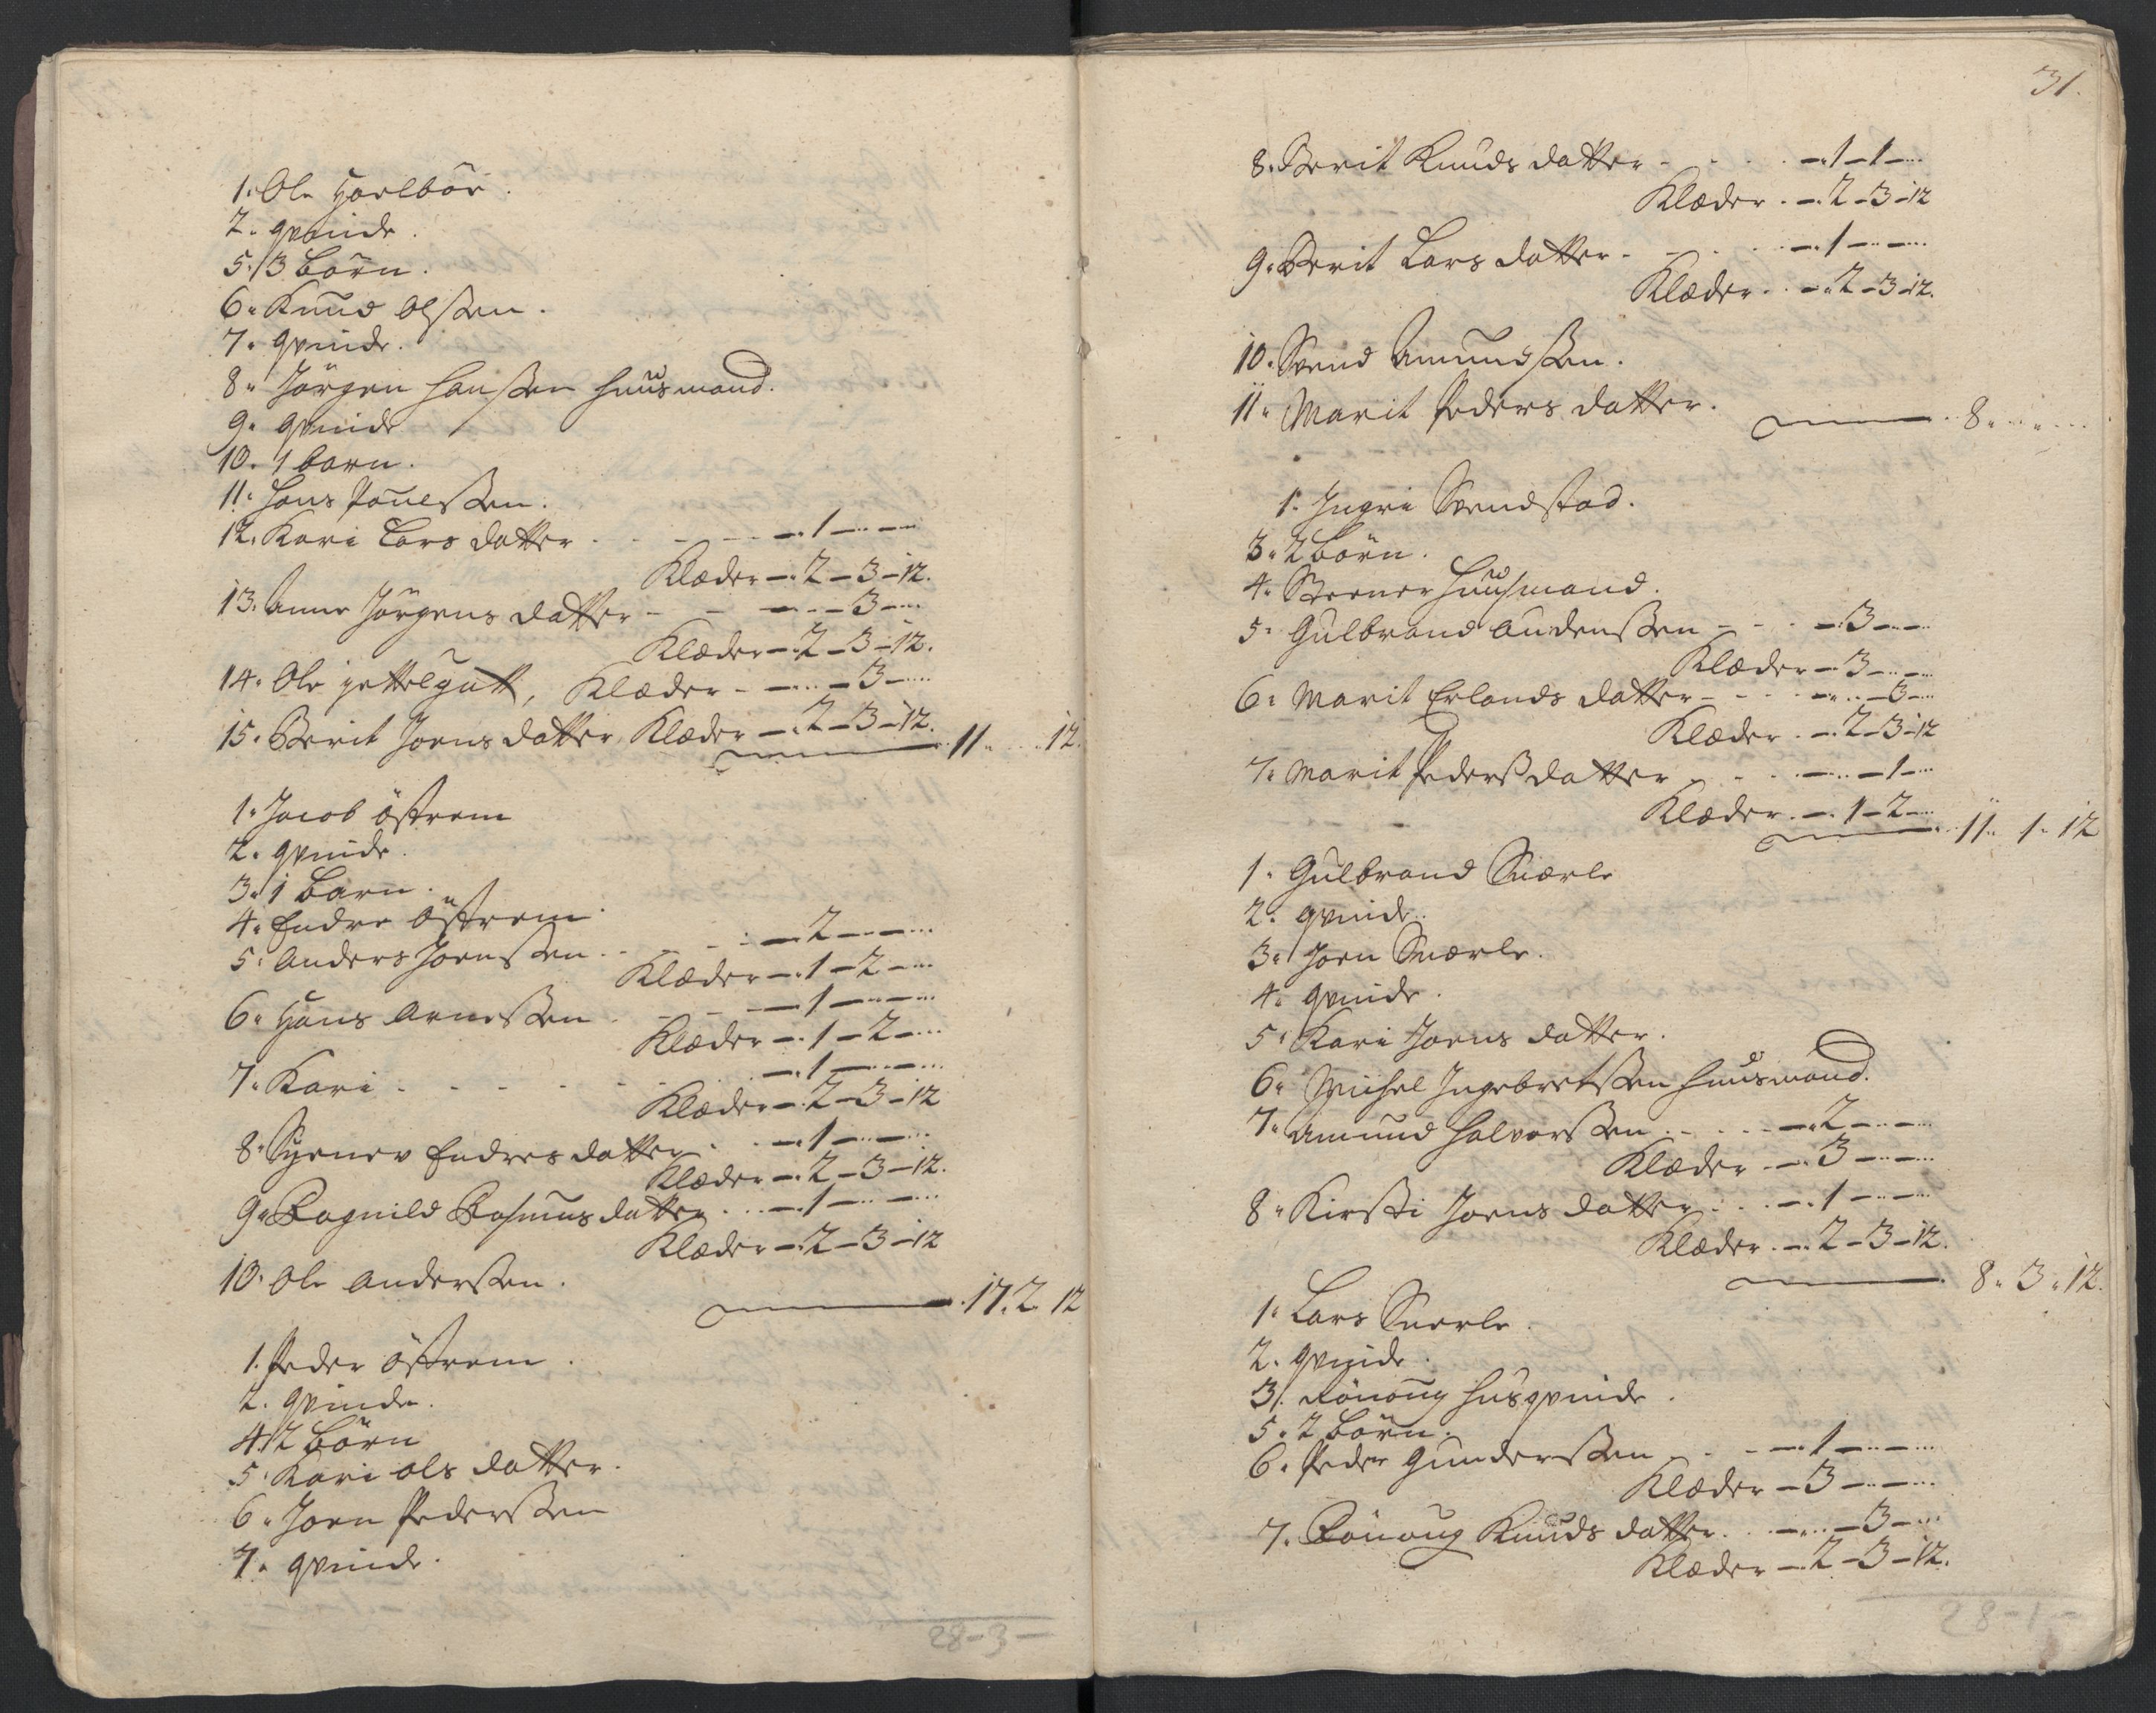 1. Ole Hoelbör.
2. qvinde.
5. 3 börn.
6. Knud Olssen.
7. qvinde.
8. Jörgen Hanssen huusmand.
9. qvinde
10. 1 barn.
11. Hans Povelssen.
12. Kari Lars datter - - - 1 - -
Klæder - 2 - 3 - 12.
13. Anne Jörgens datter - - - 3 -
Klæder - 2 - 3 - 12.
14. Ole gettelgutt, Klæder - - - 3 -
15. Berit Joens datter Klæder - 2 - 3 - 12.
11. . . 12.
1. Jacob Östrem
2. qvinde.
3. 1 barn.
4. Endre Östrem.
5. Anders Joenssen . - - 2 - -
Klæder - 1 - 2 -
6. Hans Arnessen . - - 1 - -
Klæder - 1 - 2 -
7. Kari . - - - 1 - -
Klæder - 2 - 3 - 12
8. Synnev Endres datter . - 1 - -
Klæder - 2 - 3 - 12.
9. Ragnild Rasmus datter . - 1 - -
Klæder - 2 - 3 - 12
10. Ole Anderssen.
17. 2. 12
1. Peder Östrem.
2. qvinde.
4. 2 börn
5. Kari Ols datter.
6. Joen Pederssen
7. qvinde.
28 - 3 -
31.
8. Berit Knuds datter - - - 1 - 1 -
Klæder . - 2 - 3 - 12
9. Berit Lars datter . - - 1 - -
Klæder . - 2 - 3 - 12.
10. Svend Amundssen.
11. Marit Peders datter.
8. . .
1. Ingri Svendstad.
3. 2 börn.
4. Steener huusmand.
5. Gulbrand Audenssen - - 3 - -
Klæder - 3 - -
6. Marit Erlands datter - - - 3 -
Klæder . - 2 - 3 - 12
7. Marit Peders datter - - - 1 -
Klæder . - 1 - 2 -
11. 1. 12
1. Gulbrand Snærle
2. qvinde.
3. Joen Snærle.
4. qvinde.
5. Kari Joens datter.
6. Michel Ingebretssen huusmand.
7. Amund Halvorssen . - - 2 - -
Klæder - 3 - -
8. Kirsti Joens datter . . - 1 - -
Klæder . - 2 - 3 - 12.
8. 3. 12.
1. Lars Snerle.
2. qvinde.
3. Rönoug husqvinde.
5. 2 börn.
6. Peder Gunderssen - - 1 - -
Klæder - 3 - -
7. Rönoug Knuds datter . - - 3 -
Klæder - 2 - 3 - 12.
28 - 1 -